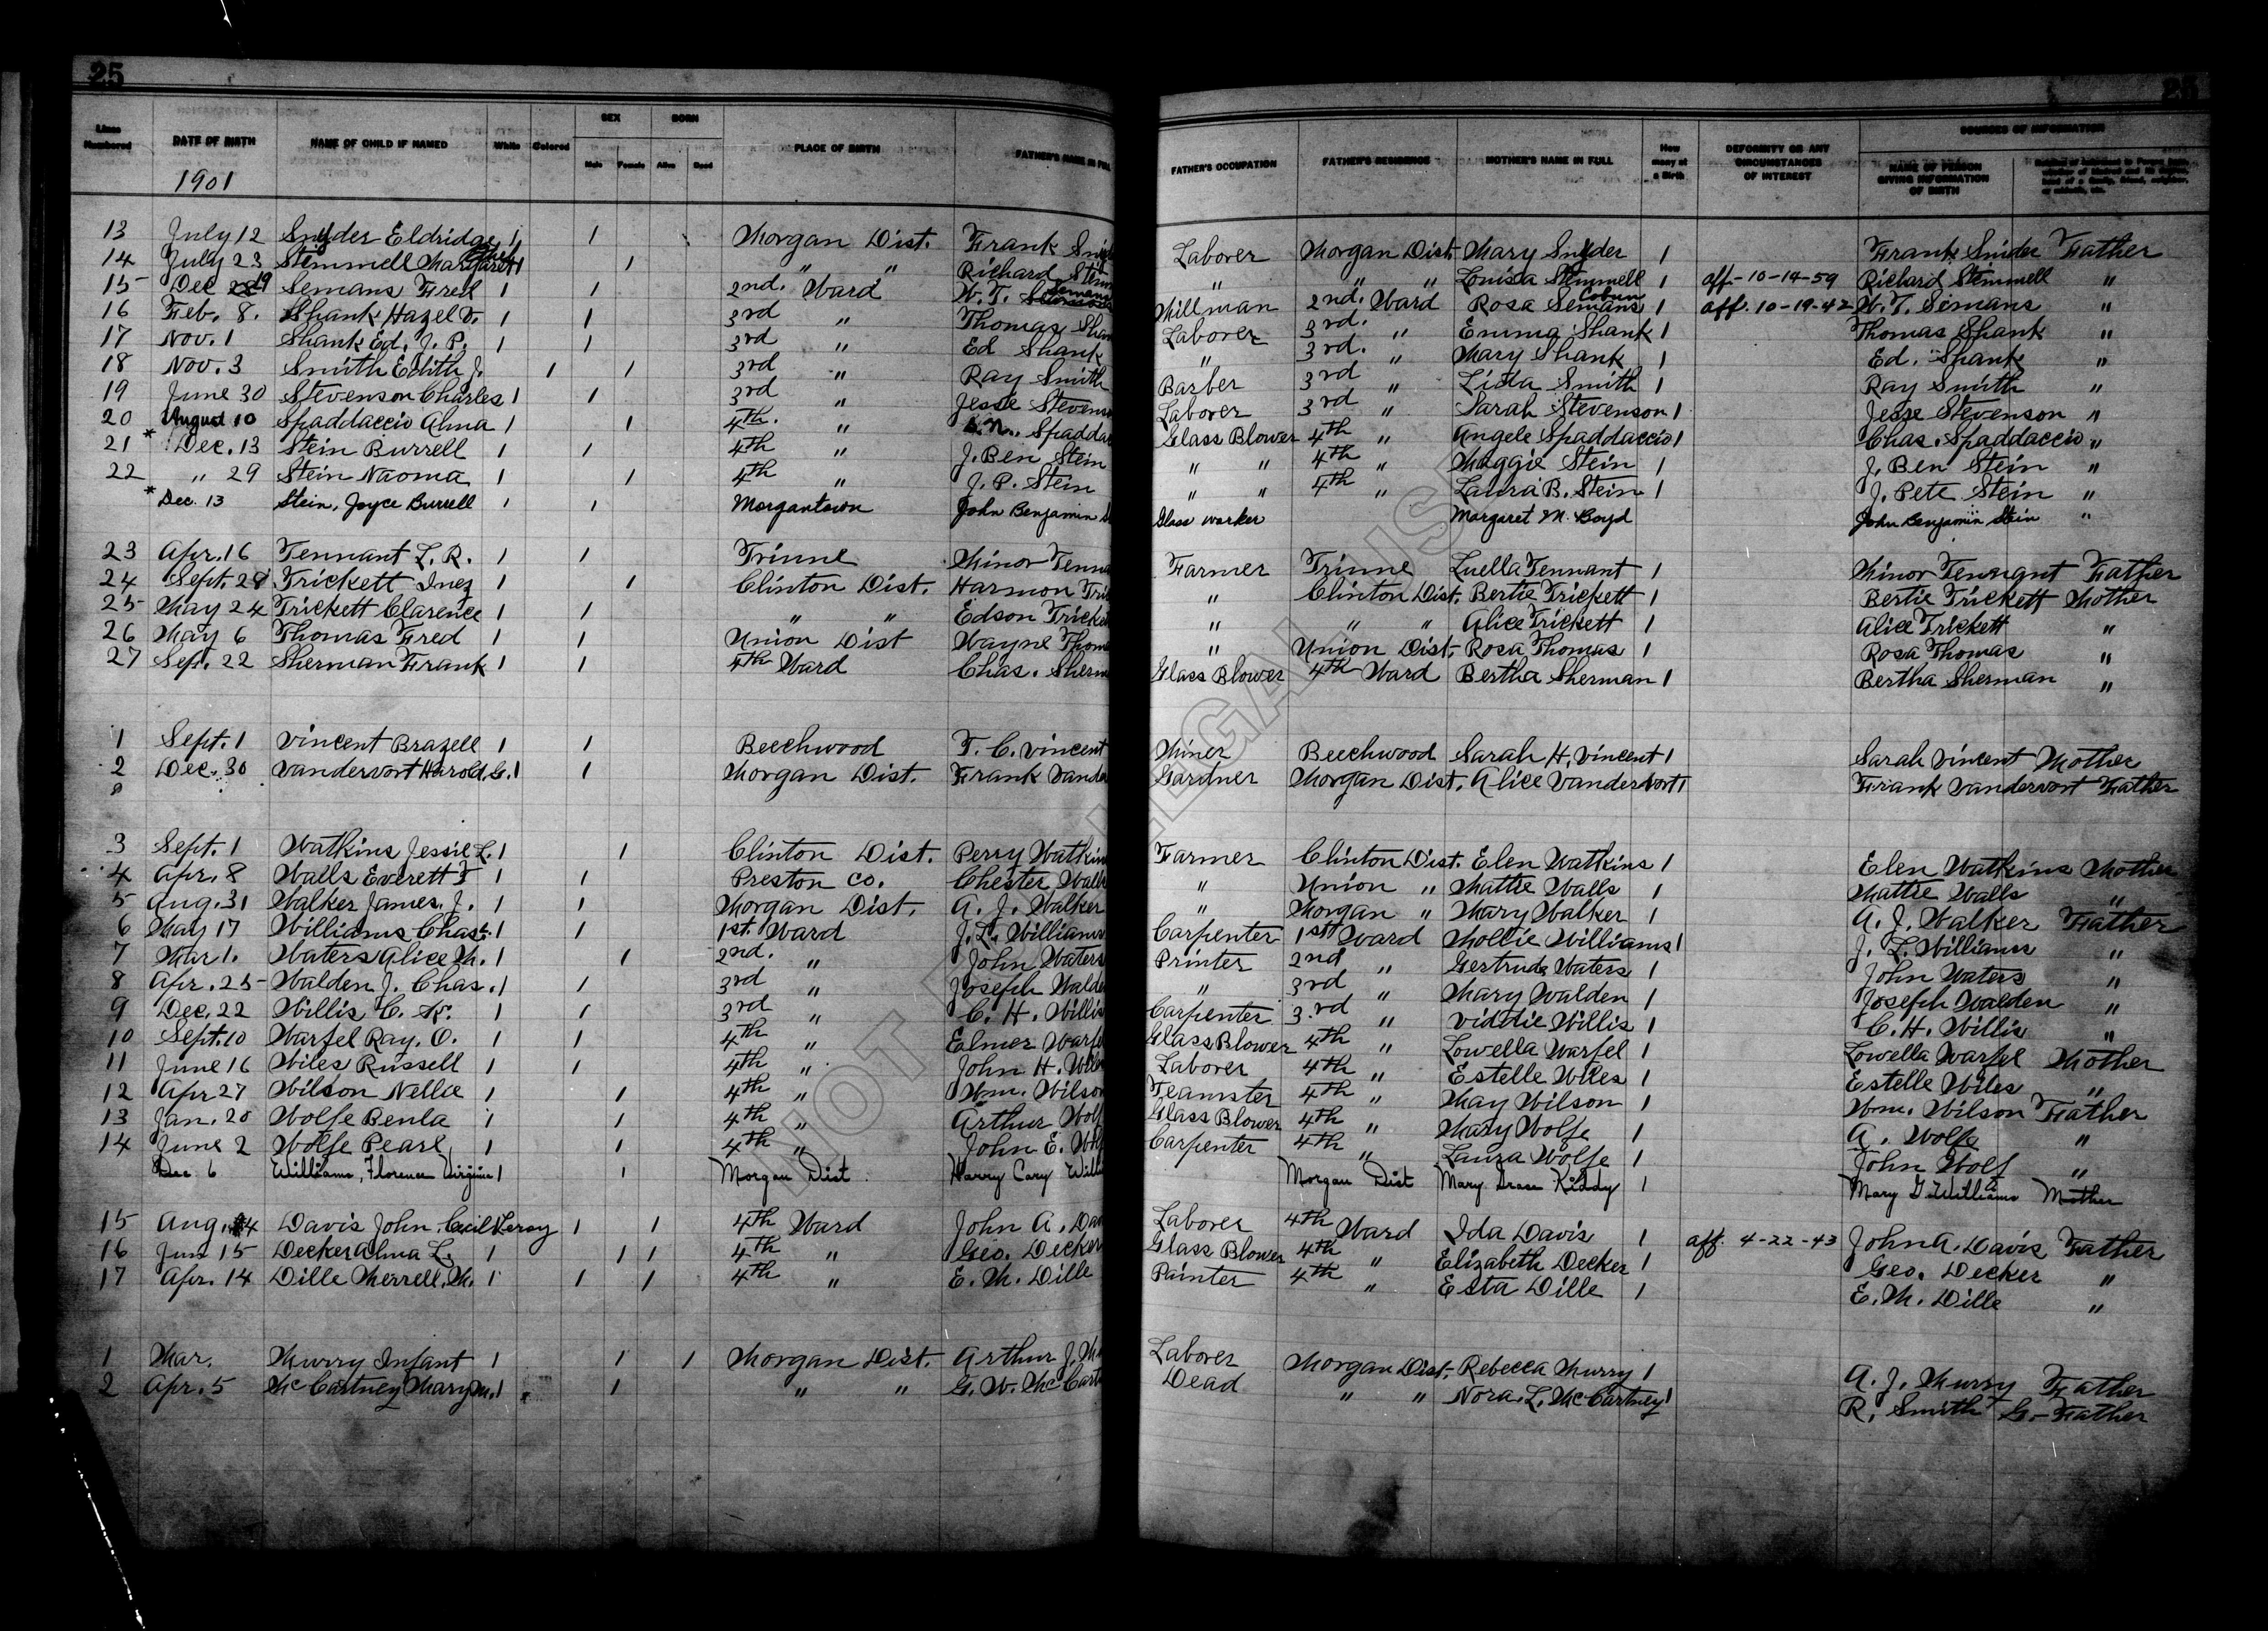 25 25
Lines Numbered DATE OF BIRTH NAME OF CHILD IF NAMED White Colored SEX Male Female BORN Alive Dead PLACE OF BIRTH FATHER'S NAME IN FULL FATHER'S OCCUPATION FATHER'S RESIDENCE MOTHER'S NAME IN FULL How many at a Birth DEFORMITY OR ANY CIRCUMSTANCES OF INTEREST SOURCES OF INFORMATION NAME OF PERSON GIVING INFORMATION OF BIRTH
1901
13 July 12 Snyder Eldridge 1 1 Morgan Dist. Frank Laborer Morgan Dist. Mary Snyder 1 Frank Snider Father
14 July 23 Stemmell Margaret 1 1 " " Richard " " " Louisa Stemmell 1 aff- 10-14-59 Richard Stemmell "
15 Dec 19 Semans Fred 1 1 2nd. Ward W. T. Semans Millman 2nd. Ward Rosa Semans Coburn 1 aff. 10-19-42 W. T. Semans "
16 Feb. 8. Shank Hazel V. 1 1 3rd " Thomas Shan Laborer 3rd. " Emma Shank 1 Thomas Shank "
17 Nov. 1 Shank Ed. J. P. 1 1 3rd " Ed Shank " 3rd. " Mary Shank 1 Ed. Shank "
18 Nov. 3 Smith Edith J. 1 1 3rd " Ray Smith Barber 3rd " Lida Smith 1 Ray Smith "
19 June 30 Stevenson Charles 1 1 3rd " Jesse Stevens Laborer 3rd " Sarah Stevenson 1 Jesse Stevenson "
20 August 10 Spaddaccio Alma 1 1 4th. " Spadda Glass Blower 4th " Angele Spaddaccio 1 Chas. Spaddaccio "
21 * Dec. 13 Stein Burrell 1 1 4th " J. Ben Stein " " 4th " Maggie Stein 1 J. Ben Stein "
22 " 29 Stein Naoma 1 1 4th " J. P. Stein " " 4th " Laura B. Stein 1 J. Pete Stein "
* Dec. 13 Stein, Joyce Burrell 1 1 Morgantown John Benjamin S Glass worker Margaret M. Boyd John Benjamin Stein "
23 Apr. 16 Tennant L. R. 1 1 Trinne Minor Tenna Farmer Trinne Luella Tennant 1 Minor Tennant Father
24 Sept. 28 Trickett Inez 1 1 Clinton Dist. Harmon Tric " Clinton Dist. Bertie Trickett 1 Bertie Trickett Mother
25 May 24 Trickett Clarence 1 1 " " Edson Tricket " " " Alice Trickett 1 Alice Trickett "
26 May 6 Thomas Fred 1 1 Union Dist Wayne Thom " Union Dist. Rosa Thomas 1 Rosa Thomas "
27 Sep. 22 Sherman Frank 1 1 4th Ward Chas. Sherm Glass Blower 4th Ward Bertha Sherman 1 Bertha Sherman "
1 Sept. 1 Vincent Brazell 1 1 Beechwood T. C. Vincent Miner Beechwood Sarah H. Vincent 1 Sarah Vincent Mother
2 Dec. 30 Vandervort Harold G. 1 1 Morgan Dist. Frank Vande Gardner Morgan Dist. Alice Vandervort 1 Frank Vandervort Father
3 Sept. 1 Watkins Jessie L. 1 1 Clinton Dist. Perry Watkin Farmer Clinton Dist. Elen Watkins 1 Elen Watkins Mother
4 Apr. 8 Walls Everett F 1 1 Preston Co. Chester Walls " Union " Mattie Walls 1 Mattie Walls "
5 Aug. 31 Walker James. J. 1 1 Morgan Dist. A. J. Walker " Morgan " Mary Walker 1 A. J. Walker Father
6 May 17 Williams Chas. 1 1 1st. Ward J. L. Williams Carpenter 1st Ward Mollie Williams 1 J. L. Williams "
7 Mar 1. Waters Alice M. 1 1 2nd. " John Waters Printer 2nd " Gertrude Waters 1 John Waters "
8 Apr. 25 Walden J. Chas. 1 1 3rd " Joseph Walde " 3rd " Mary Walden 1 Joseph Walden "
9 Dec. 22 Willis C. K. 1 1 3rd " C. H. Willis Carpenter 3rd " Viddie Willis 1 C. H. Willis "
10 Sept. 10 Warfel Ray. O. 1 1 4th " Elmer Warfe Glass Blower 4th " Lowella Warfel 1 Lowella Warfel Mother
11 June 16 Wiles Russell 1 1 4th " John H. Wiles Laborer 4th " Estelle Wiles 1 Estelle Wiles "
12 Apr 27 Wilson Nellie 1 1 4th " Wm. Wilson Teamster 4th " May Wilson 1 Wm. Wilson Father
13 Jan. 20 Wolfe Benla 1 1 4th " Arthur Wolf Glass Blower 4th " Mary Wolfe 1 A. Wolfe "
14 June 2 Wolfe Pearl 1 1 4th " John E. Wol Carpenter 4th " Laura Wolfe 1 John Wolf "
Dec 6 Williams, Florence Virginia 1 1 Morgan Dist. Harry Cary Willi Morgan Dist Mary Grace Kiddy 1 Mary G. Williams Mother
15 Aug. 4 Davis John. Cecil Leroy 1 1 4th Ward John A. Dav Laborer 4th Ward Ida Davis 1 aff. 4-22-43 John A. Davis Father
16 Jun 15 Decker Alma L. 1 1 1 4th " Geo. Decker Glass Blower 4th " Elizabeth Decker 1 Geo. Decker "
17 Apr. 14 Dille Merrell. M. 1 1 1 4th " E. M. Dille Painter 4th " Esta Dille 1 E. M. Dille "
1 Mar. Murry Infant 1 1 1 Morgan Dist. Arthur J. M Laborer Morgan Dist. Rebecca Murry 1 A. J. Murry Father
2 Apr. 5 McCartney Mary M. 1 1 " " G. W. McCart Dead " " Nora. L. McCartney 1 R. Smith G-Father